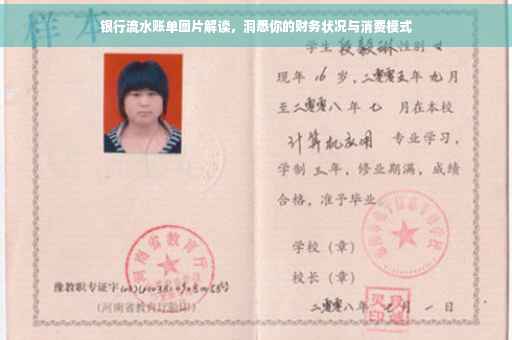 银行流水账单图片解读，洞悉你的财务状况与消费模式
样本
学生段毅琳性别女
现年16岁，二零零五年九月
至二零零八年七月在本校
计算机应用专业学习，
学制三年，修业期满，成绩
合格，准予毕业。
学校（章）
校长（章）
二零零八年七月一日
河南省教育厅
豫教职专证字
（河南省教育厅验印）